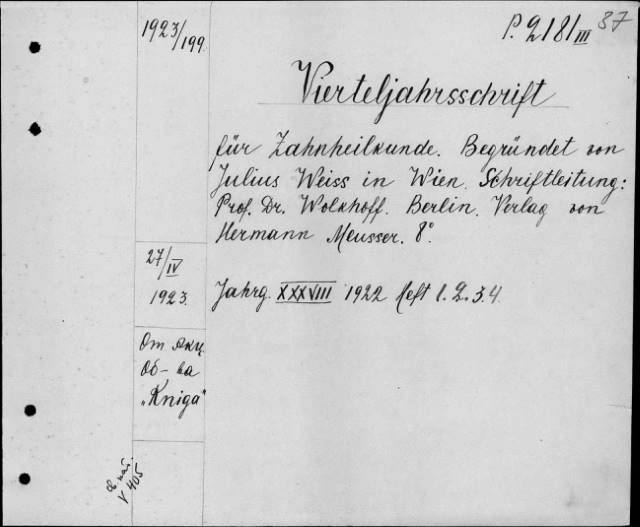 1923/199.
P. 218/III 37
Vierteljahrsschrift
für Zahnheilkunde. Begründet von
Julius Weiss in Wien. Schriftleitung:
Prof. Dr. Wolkhoff. Berlin. Verlag von
Hermann Meusser. 8°.
27/IV
1923.
Jahrg. XXXVIII 1922 Heft 1. 2. 3. 4.
От акц.
Об-ва
„Kniga"
V 405